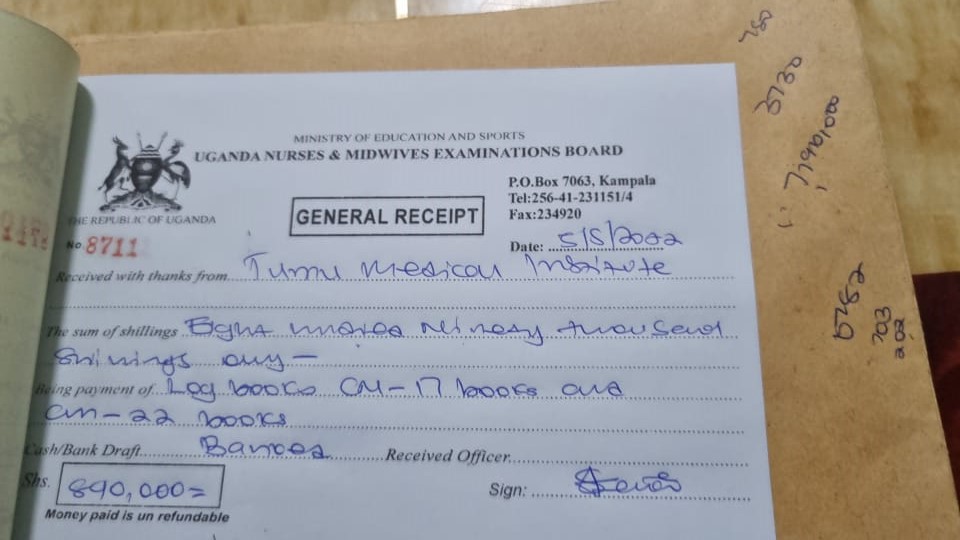 MINISTRY OF EDUCATION AND SPORTS
UGANDA NURSES & MIDWIVES EXAMINATIONS BOARD
P.O.Box 7063, Kampala
Tel:256-41-231151/4
Fax:234920
THE REPUBLIC OF UGANDA
GENERAL RECEIPT
No. 8711
Date: 5/5/2022
Received with thanks from Tumu Medical Institute
The sum of shillings Eight Hundred Ninety thousand
Shillings only -
Being payment of Log books CM-17 books and
CN-22 books
Cash/Bank Draft Banked Received Officer
Shs. 890,000=
Sign:
Money paid is un refundable
780
3730
7,190,000
5782
203
202